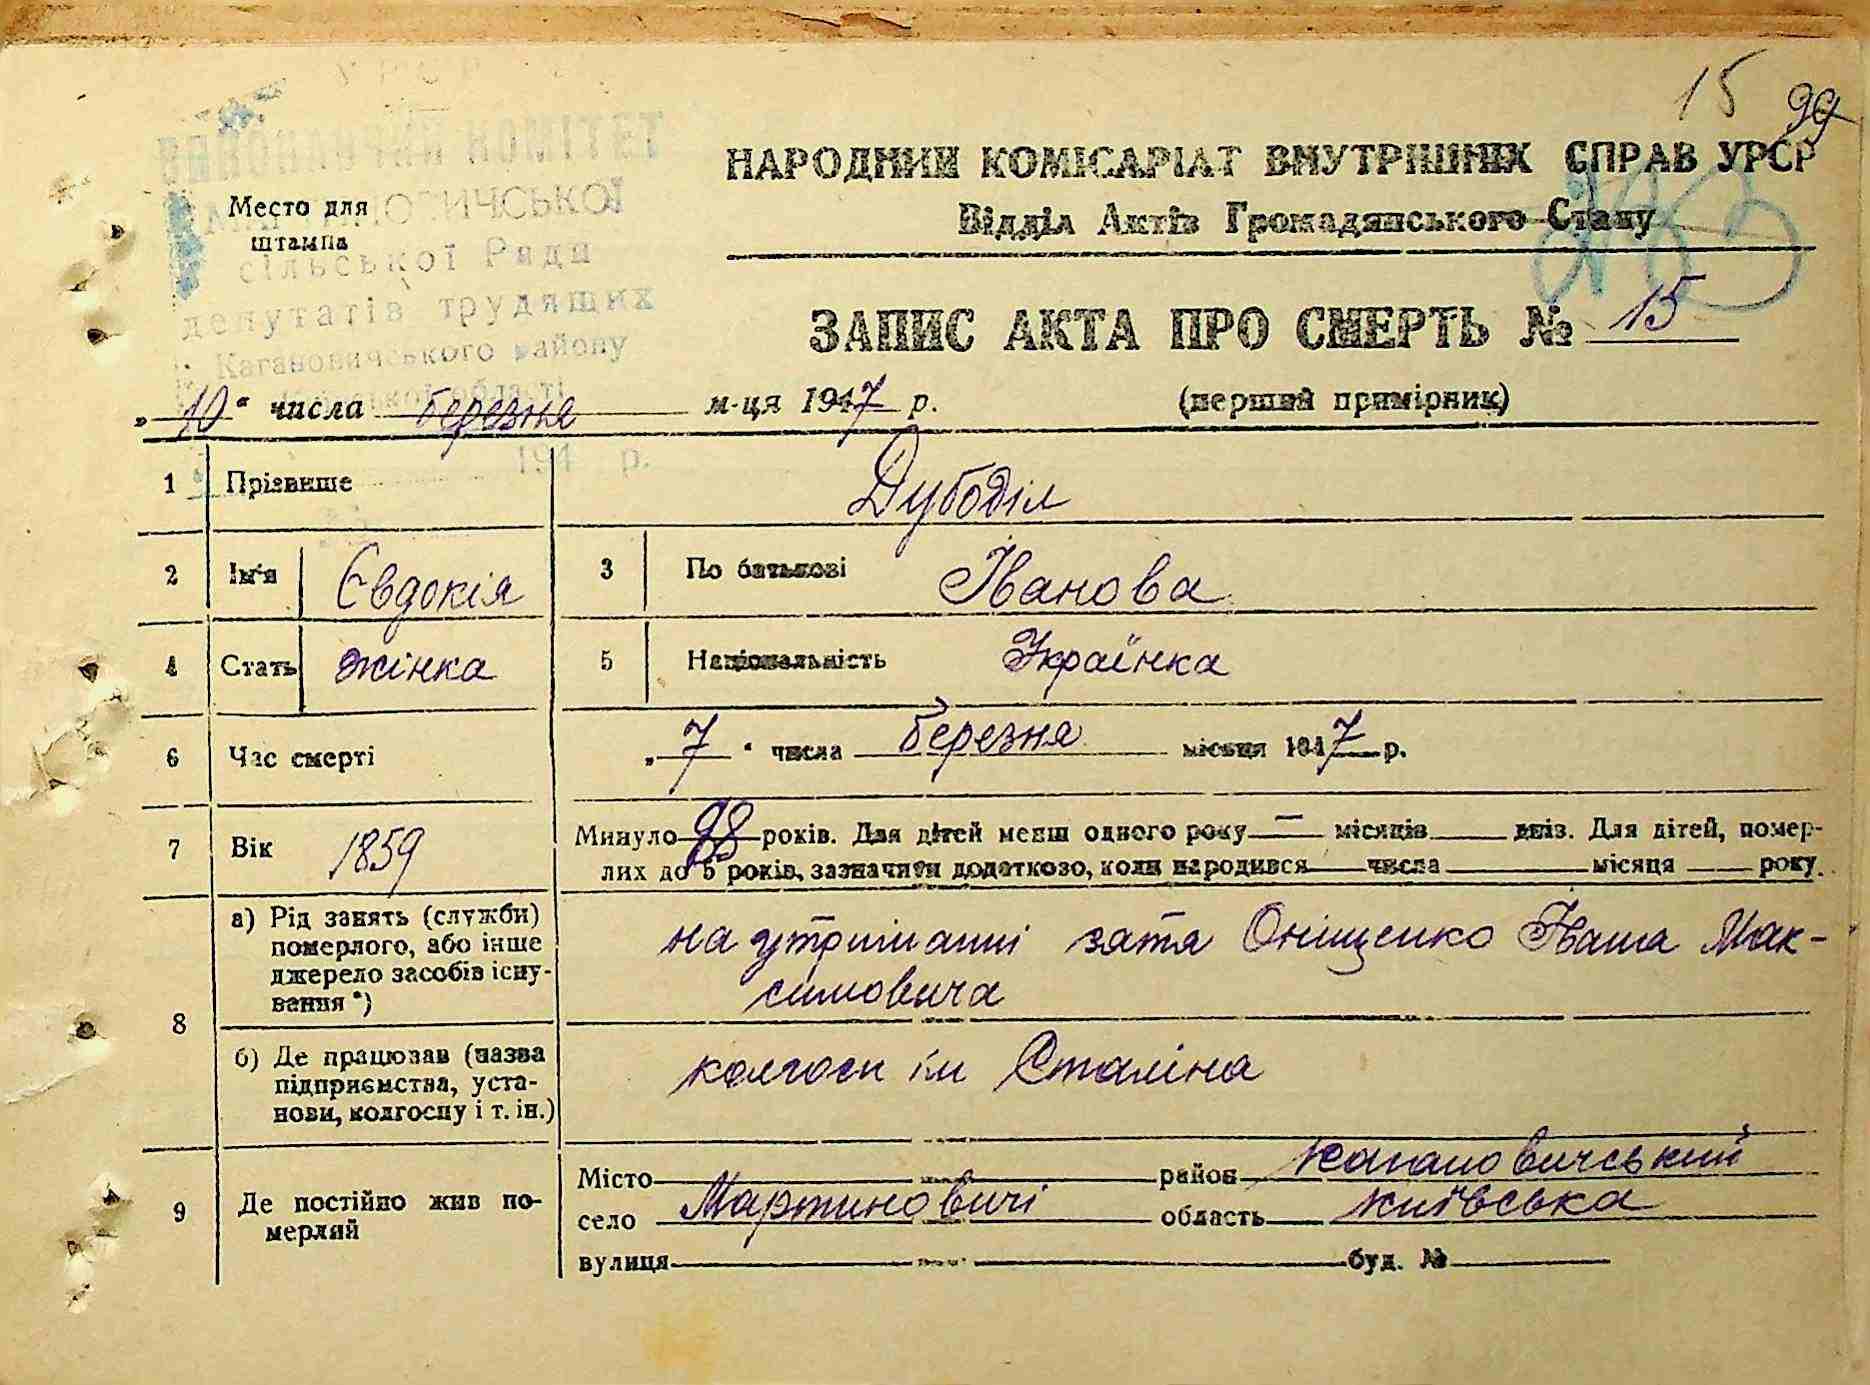 15 99
УРСР
ВИКОНАВЧИЙ КОМІТЕТ
МАРТИНОВИЧСЬКОЇ
сільської Ради
депутатів трудящих
Кагановичського району
області
194 р.
Место для
штампа
НАРОДНИЙ КОМІСАРІАТ ВНУТРІШНІХ СПРАВ УРСР
Відділ Актів Громадянського Стану
ЗАПИС АКТА ПРО СМЕРТЬ № 15
„10“ числа березня м-ця 1947 р. (перший примірник)
1 Прізвище Дубоділ
2 Ім'я Євдокія 3 По батькові Іванова
4 Стать жінка 5 Національність Українка
6 Час смерті „7“ числа березня місяця 1947 р.
7 Вік 1859 Минуло 88 років. Для дітей менш одного року — місяців днів. Для дітей, помер-
лих до 5 років, зазначити додатково, коли народився числа місяця року.
8 а) Рід занять (служби)
померлого, або інше
джерело засобів існу-
вання *)
на утриманні зятя Оніщенко Івана Мак-
симовича
б) Де працював (назва
підприємства, уста-
нови, колгоспу і т. ін.)
колгосп ім Сталіна
9 Де постійно жив по-
мерлий
Місто район Кагановичський
село Мартиновичі область Київська
вулиця буд. №